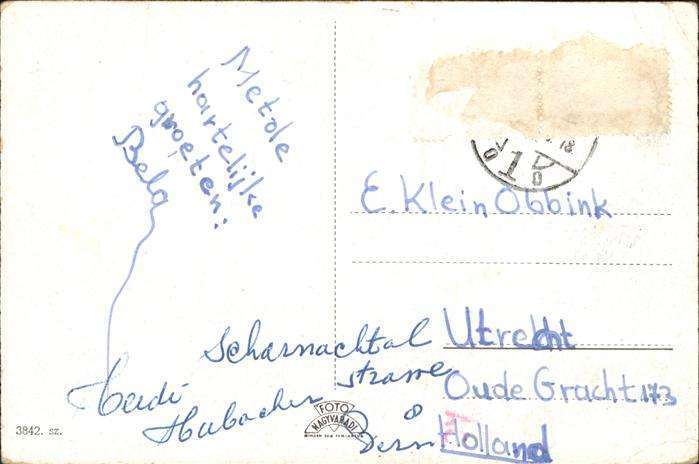 Metole
hartelijke
groeten:
Bela
E. Klein Obbink
Utrecht
Oude Gracht 173
Holland
Scharnachtal
strasse
8
Bern
Heidi
Hubacher
FOTO
NAGYVÁRADI
3842. sz.
1
18